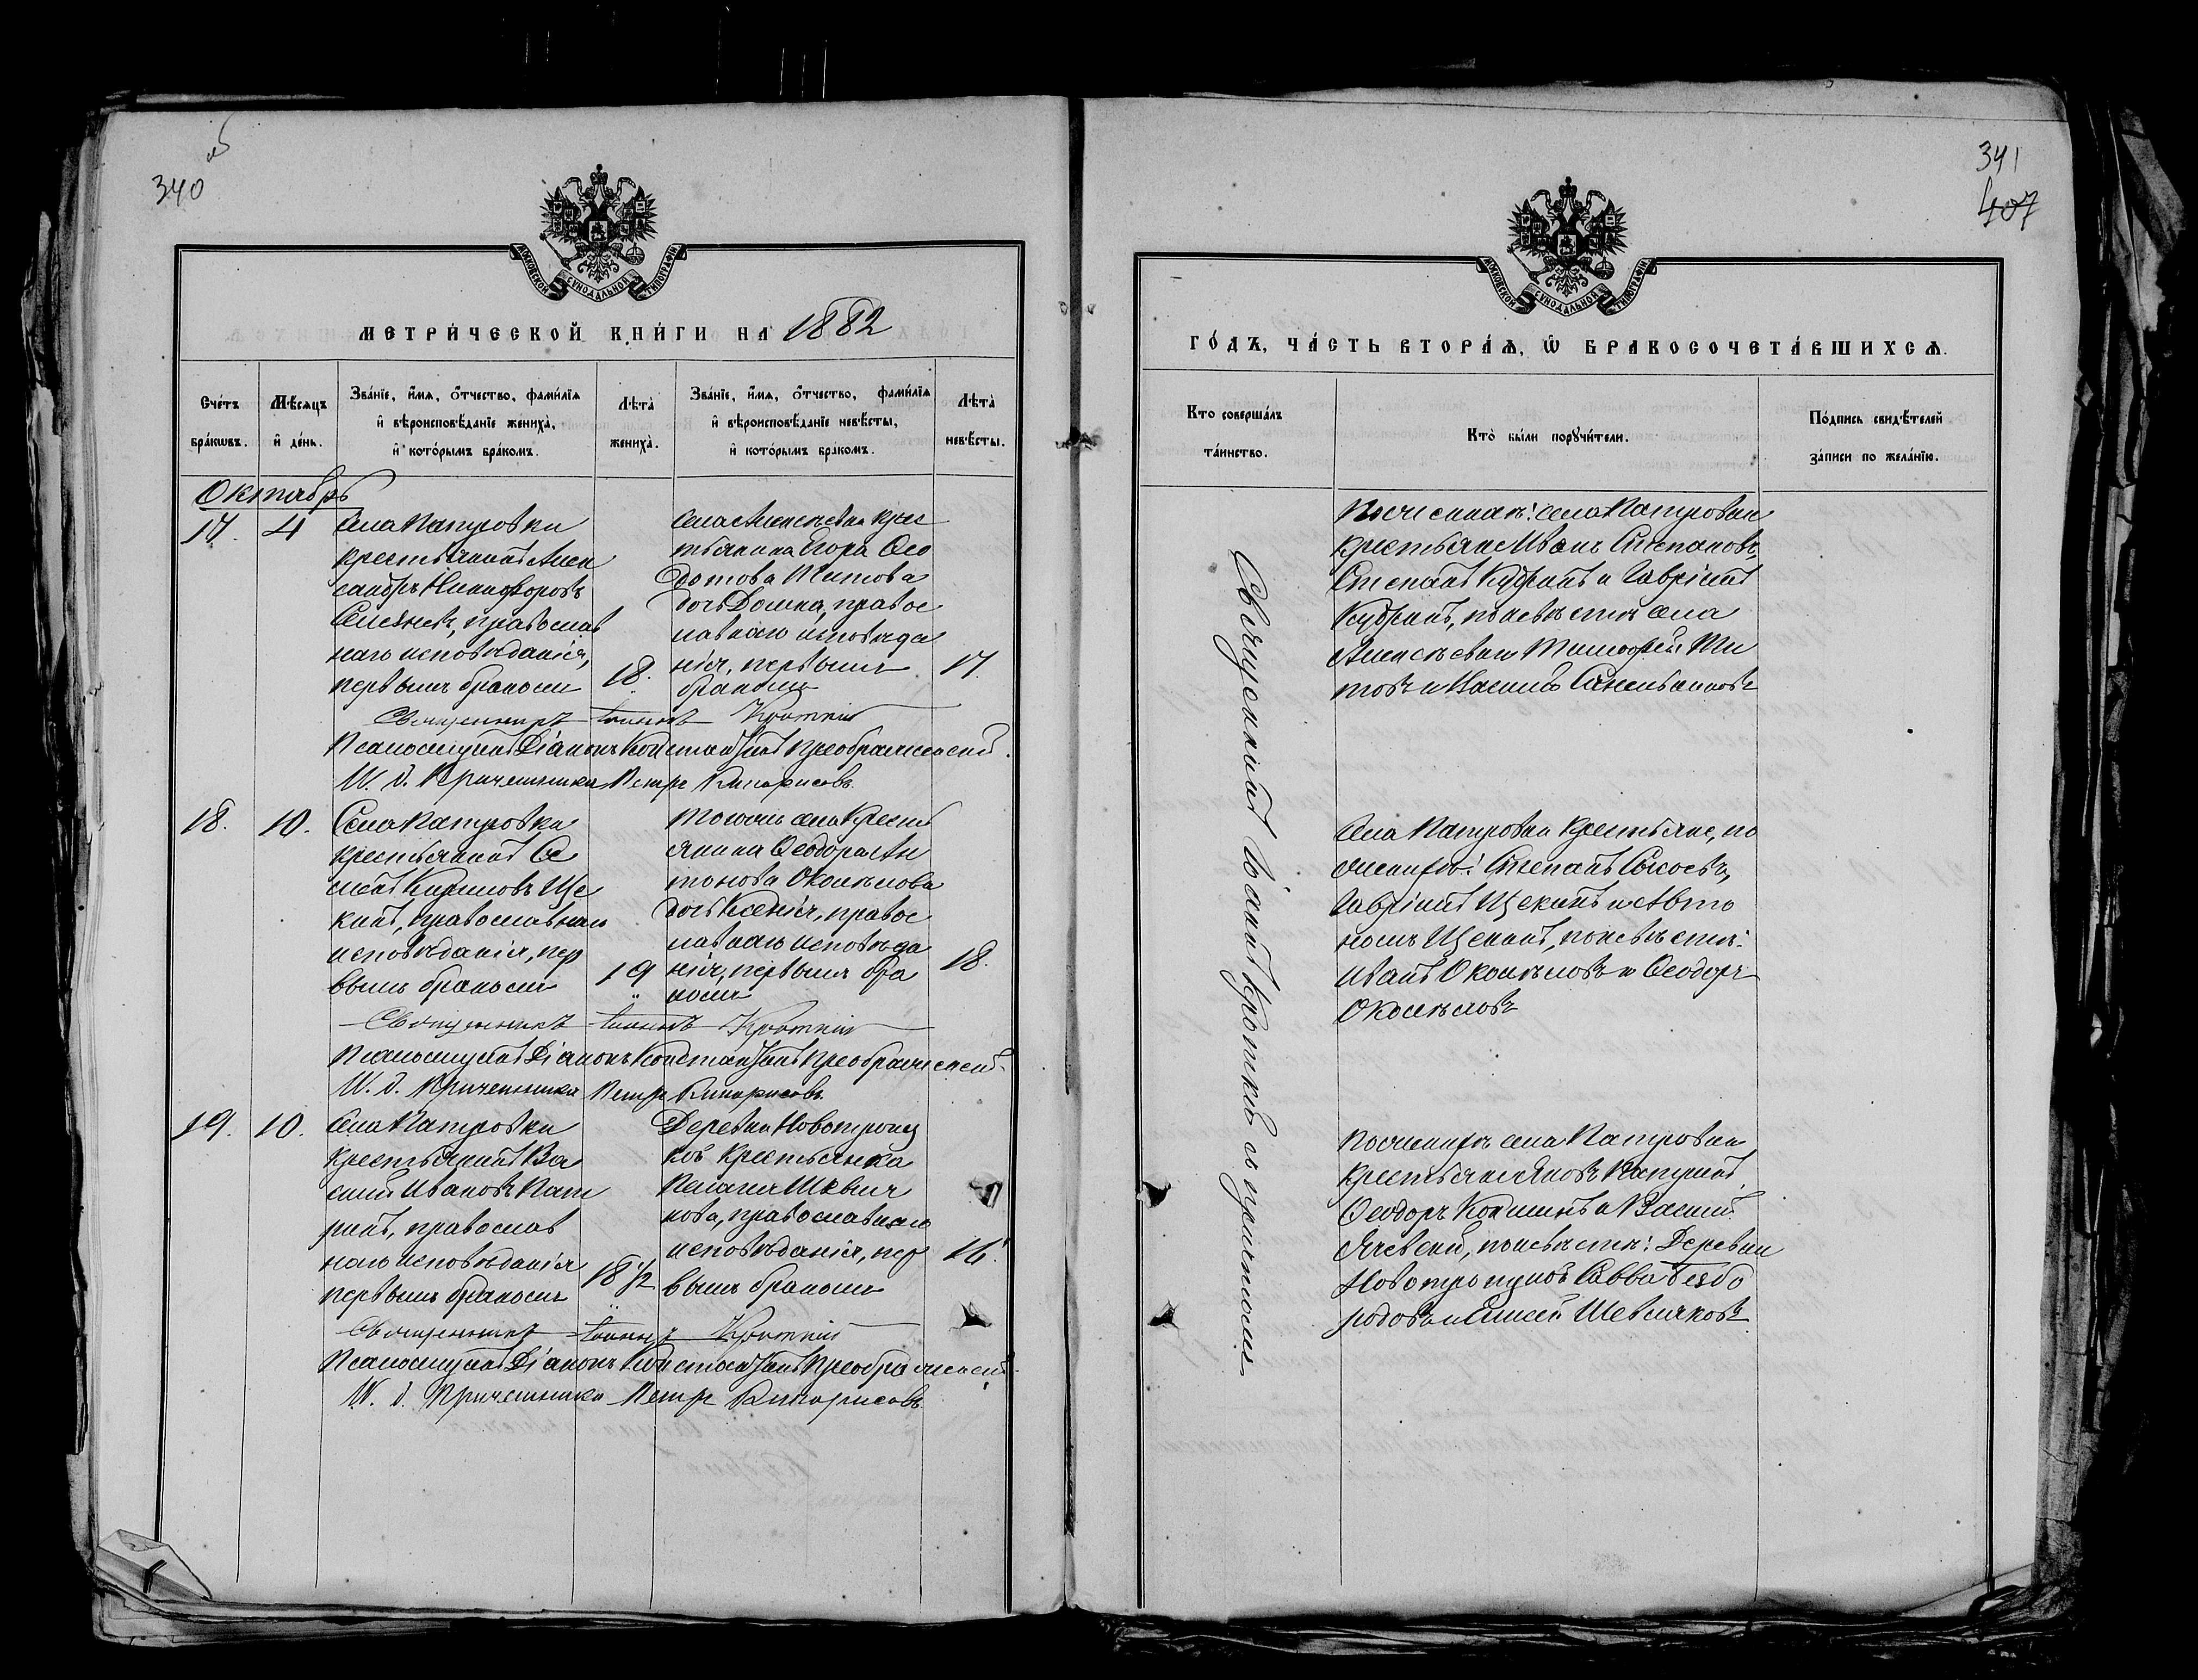 340
МОСКОВСКОЙ СѴНОДАЛЬНОЙ ТИПОГРАФІИ
МЕТРИ́ЧЕСКОЙ КНИ́ГИ НА 1882
Сче́тъ бра́кѡвъ.
Мѣ́сяцъ и҆ де́нь.
Зва́нїе, и҆́мѧ, ѻ҆́тчество, фами́лїѧ и҆ вѣроисповѣ́данїе жениха̀, и҆ кото́рымъ бра́комъ.
Лѣта̀ жениха̀.
Зва́нїе, и҆́мѧ, ѻ҆́тчество, фами́лїѧ и҆ вѣроисповѣ́данїе невѣ́сты, и҆ кото́рымъ бра́комъ.
Лѣта̀ невѣ́сты.
Октябрь
17.
4
Села Патровки
крестьянинъ Алек
сандръ Никифоровъ
православ
наго исповѣданія,
первымъ бракомъ
18.
Села Алексѣевки крес
тьянина Егора Ѳео
дотова Титова
дочь Домна, правос
лавнаго исповѣда
нія, первымъ
бракомъ
17.
Священникъ Іоаннъ Кроткій
Псаломщикъ Діаконъ Константинъ Преображенскій.
И. д. Причетника Петръ Кипарисовъ.
18.
10.
Села Патровки
крестьянинъ
Кириловъ Ще
кинъ, православнаго
исповѣданія, пер
вымъ бракомъ
19
Тогоже села Крест
янина Ѳеодора Ан
тонова Околѣлова
дочь Ксенія, правос
лавнаго исповѣда
нія, первымъ бра
комъ
18.
Священникъ Іоаннъ Кроткій
Псаломщикъ Діаконъ Константинъ Преображенскій.
И. д. Причетника Петръ Кипарисовъ.
19.
10.
Села Патровки
крестьянинъ Ва
силій Ивановъ Пат
ринъ, православ
наго исповѣданія
первымъ бракомъ
18 1/2
Деревни Новотроиц
кой Крестьянка
Пелагія Шевля
кова, православнаго
исповѣданія, пер
вымъ бракомъ
16.
Священникъ Іоаннъ Кроткій
Псаломщикъ Діаконъ Константинъ Преображенскій.
И. д. Причетника Петръ Кипарисовъ.
341
407
МОСКОВСКОЙ СѴНОДАЛЬНОЙ ТИПОГРАФІИ
ГО́ДЪ, ЧА́СТЬ ВТОРА́Ѧ, Ѡ҆ БРАКОСОЧЕТА́ВШИХСѦ.
Кто соверша́лъ та́инство.
Кто̀ бы́ли порꙋчи́тели.
По́дпись свидѣ́телей за́писи по жела́нїю.
Священникъ Іоаннъ Кроткій съ причтомъ
По женихѣ: села Патровки
крестьяне Иванъ Степановъ,
Степанъ Кудринъ и Гавріилъ
Кудринъ, по невѣстѣ села
Алексѣевки Тимофей Ти
товъ и
Села Патровки Крестьяне, по
женихѣ: Степанъ Сысоевъ,
Гавріилъ Щекинъ и Авто
номъ Щекинъ, по невѣстѣ:
Иванъ Околѣловъ и Ѳеодоръ
Околѣловъ
По женихѣ села Патровки
крестьяне Яковъ
Ѳеодоръ и Василій
по невѣстѣ: Деревни
Савва Безбо
родовъ и Елисей Шевляковъ